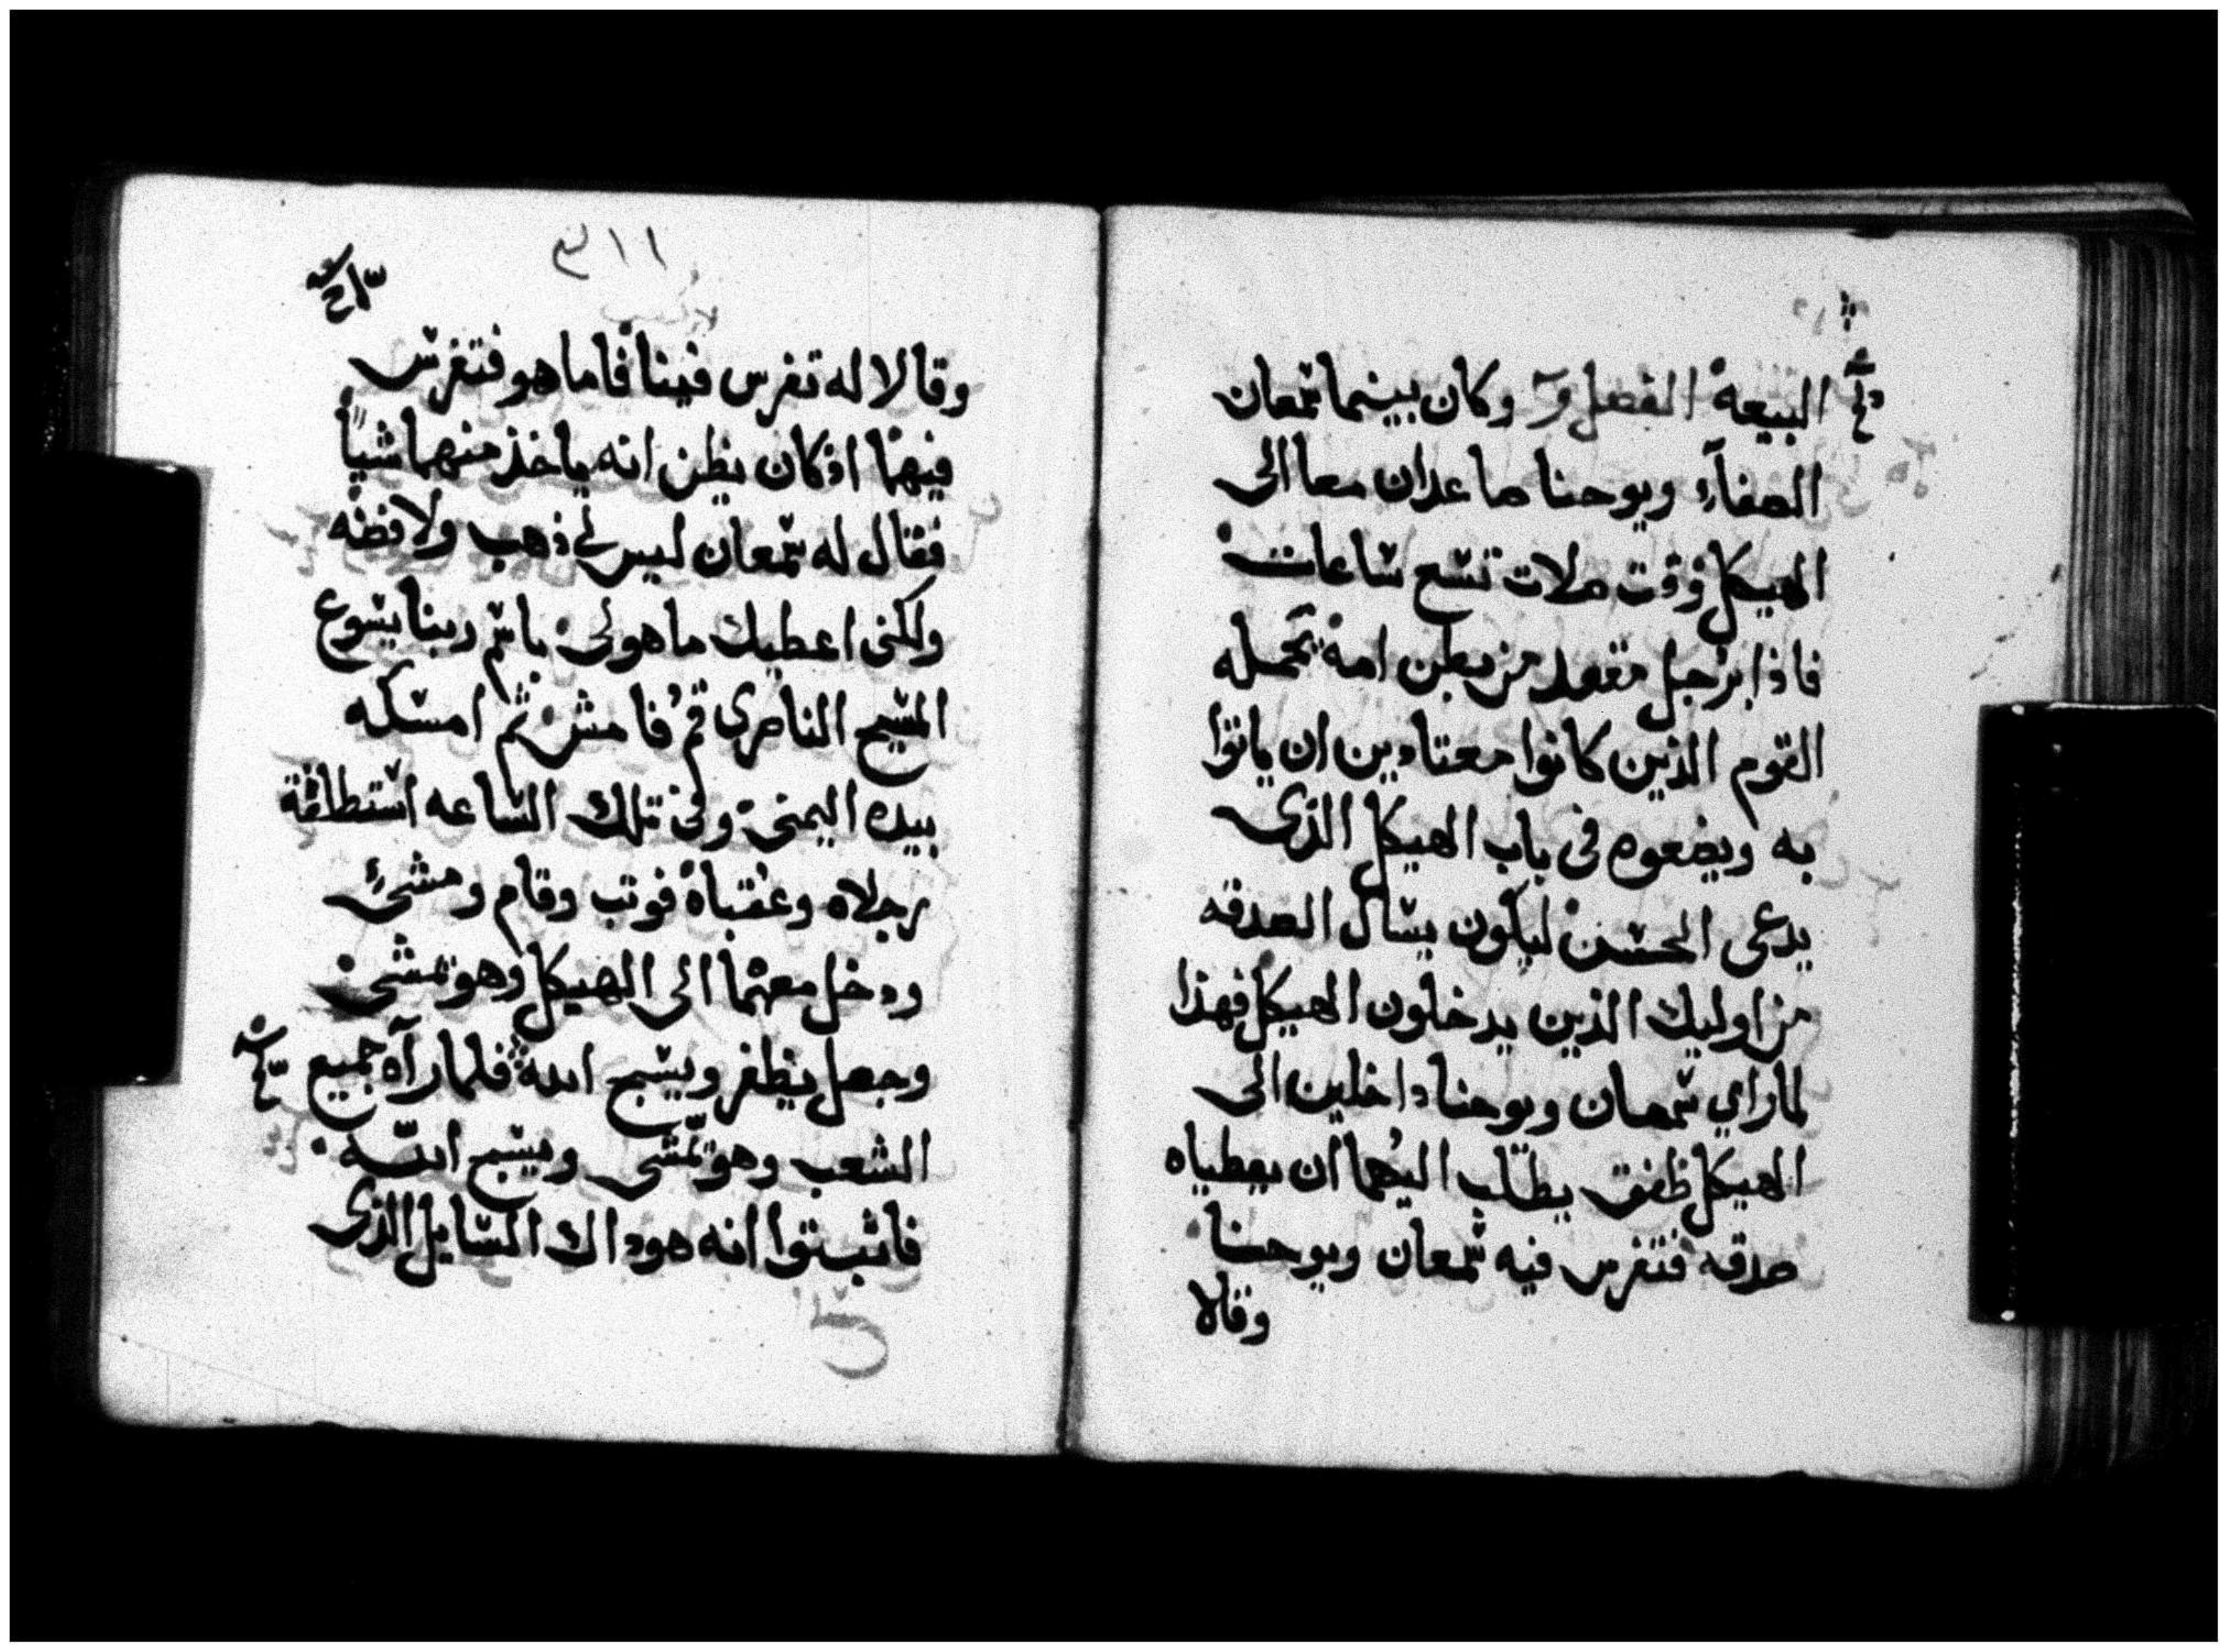 البيعة الفصل و وكان بينما شمعان
الصفاء ويوحنا صاعدان معا الى
الهيكل وقت صلات تسع ساعات
فاذا برجل مقعد من بطن امه تحمله
القوم الذين كانوا معتادين ان ياتوا
به ويضعوه فى باب الهيكل الذى
يدعى الحسن ليكون يسال الصدقه
من اوليك الذين يدخلون الهيكل فهذا
لما راي شمعان ويوحنا داخلين الى
الهيكل ظفق يطلب اليهما ان يعطياه
صدقه فتفرس فيه شمعان ويوحنا
وقالا
٣١١
وقالا له تفرس فينا فاما هو فتفرس
فيهما اذ كان يظن انه ياخذ منهما شياً
فقال له شمعان ليس لي ذهب ولا فضه
ولكنى اعطيك ما هو لى باسم ربنا يسوع
المسيح الناصرى قم فامش ثم امسكه
بيده اليمنى وفى تلك الساعه استطلقة
رجلاه وعقباة فوتب وقام ومشى
ودخل معهما الى الهيكل وهو يمشى
وجعل يظفر ويسبح الله فلما رآه جميع
الشعب وهو يمشى ويسبح الله
فاثبتوا انه هو داك السايل الذى